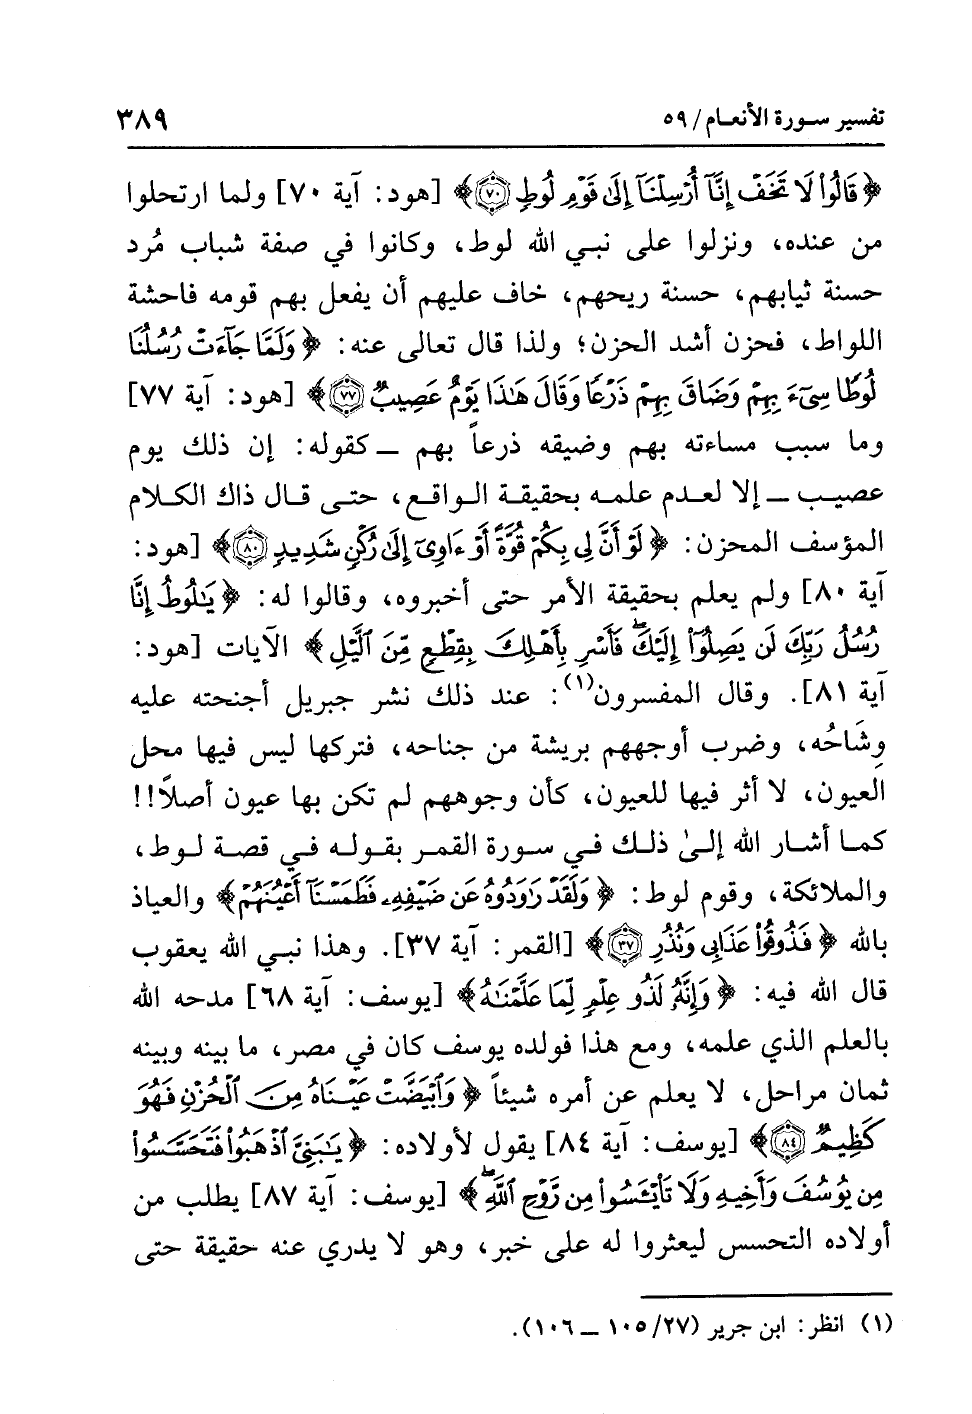 تفسير سورة الأنعام/ ٥٩ ٣٨٩
﴿قَالُوا۟ لَا تَخَفْ إِنَّآ أُرْسِلْنَآ إِلَىٰ قَوْمِ لُوطٍ ﴿٧٠﴾﴾ [هود: آية ٧٠] ولما ارتحلوا
من عنده، ونزلوا على نبي الله لوط، وكانوا في صفة شباب مُرد
حسنة ثيابهم، حسنة ريحهم، خاف عليهم أن يفعل بهم قومه فاحشة
اللواط، فحزن أشد الحزن؛ ولذا قال تعالى عنه: ﴿وَلَمَّا جَآءَتْ رُسُلُنَا
لُوطًا سِىٓءَ بِهِمْ وَضَاقَ بِهِمْ ذَرْعًا وَقَالَ هَٰذَا يَوْمٌ عَصِيبٌ ﴿٧٧﴾﴾ [هود: آية ٧٧]
وما سبب مساءته بهم وضيقه ذرعاً بهم ــ كقوله: إن ذلك يوم
عصيب ــ إلا لعدم علمه بحقيقة الواقع، حتى قال ذاك الكلام
المؤسف المحزن: ﴿لَوْ أَنَّ لِى بِكُمْ قُوَّةً أَوْ ءَاوِىٓ إِلَىٰ رُكْنٍ شَدِيدٍ ﴿٨٠﴾﴾ [هود:
آية ٨٠] ولم يعلم بحقيقة الأمر حتى أخبروه، وقالوا له: ﴿يَٰلُوطُ إِنَّا
رُسُلُ رَبِّكَ لَن يَصِلُوٓا۟ إِلَيْكَ ۖ فَأَسْرِ بِأَهْلِكَ بِقِطْعٍ مِّنَ ٱلَّيْلِ﴾ الآيات [هود:
آية ٨١]. وقال المفسرون(١): عند ذلك نشر جبريل أجنحته عليه
وِشَاحُه، وضرب أوجههم بريشة من جناحه، فتركها ليس فيها محل
العيون، لا أثر فيها للعيون، كأن وجوههم لم تكن بها عيون أصلاً!!
كما أشار الله إلىٰ ذلك في سورة القمر بقوله في قصة لوط،
والملائكة، وقوم لوط: ﴿وَلَقَدْ رَٰوَدُوهُ عَن ضَيْفِهِۦ فَطَمَسْنَآ أَعْيُنَهُمْ﴾ والعياذ
بالله ﴿فَذُوقُوا۟ عَذَابِى وَنُذُرِ ﴿٣٧﴾﴾ [القمر: آية ٣٧]. وهذا نبي الله يعقوب
قال الله فيه: ﴿وَإِنَّهُۥ لَذُو عِلْمٍ لِّمَا عَلَّمْنَٰهُ﴾ [يوسف: آية ٦٨] مدحه الله
بالعلم الذي علمه، ومع هذا فولده يوسف كان في مصر، ما بينه وبينه
ثمان مراحل، لا يعلم عن أمره شيئاً ﴿وَٱبْيَضَّتْ عَيْنَاهُ مِنَ ٱلْحُزْنِ فَهُوَ
كَظِيمٌ ﴿٨٤﴾﴾ [يوسف: آية ٨٤] يقول لأولاده: ﴿يَٰبَنِىَّ ٱذْهَبُوا۟ فَتَحَسَّسُوا۟
مِن يُوسُفَ وَأَخِيهِ وَلَا تَا۟يْـَٔسُوا۟ مِن رَّوْحِ ٱللَّهِ ۖ﴾ [يوسف: آية ٨٧] يطلب من
أولاده التحسس ليعثروا له على خبر، وهو لا يدري عنه حقيقة حتى
(١) انظر: ابن جرير (٢٧/ ١٠٥ ــ ١٠٦).